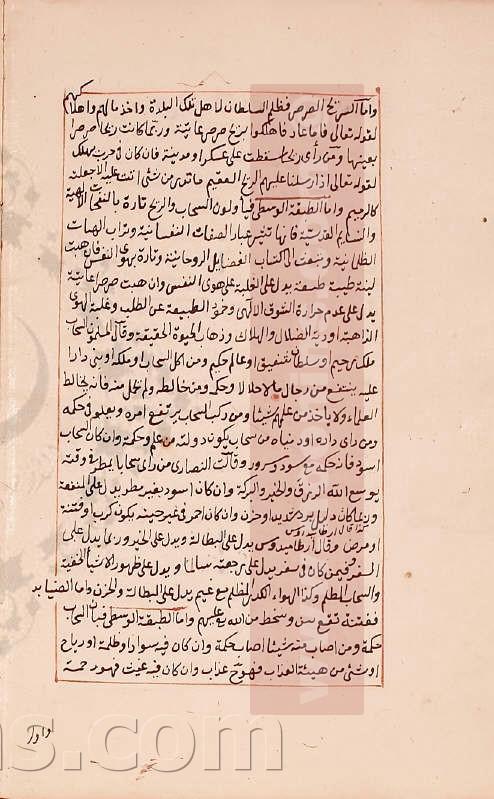 واما السريح الصرصر فظلم السلطان لاهل تلك البلدة واخذ مالهم واهلاكهم
لقوله تعالى فاما عاد فاهلكوا بريح صرصر عاتية وربما كانت ريحا صرصرا
بعينها ومن رأى ريحا سقطت على عسكر او مدينة فان كان في حرب يهلك
لقوله تعالى اذ ارسلنا عليهم الريح العقيم ما تذر من شئ اتت عليه الا جعلته
كالرميم واما الطبقة الوسطى فيأولون السحاب والريح تارة بالنفحات الالهية
والنسايم القدسية فانها تثير غبار الصفات النفسانية وتراب الهيات
الظلمانية وتبعث الى اكتساب الفضايل الروحانية وتارة بهوى النفس فان هبت
لينة طيبة طبيعة يدل على الغلبة على هوى النفس وان هبت صرصر عاتية
يدل على عدم حرارة الشوق الالهى وخمود الطبيعة عن الطلب وغلبة الهوى
الذاهبة اودية الضلال والهلاك وذهاب الحيوة الحقيقة وقال المسلمون السحاب
ملك رحيم وسلطان شفيق او عالم حكيم ومن اكل السحاب او ملكه او بنى دارا
عليه ينتفع من رجال مالا حلالا وحكمة ومن خالطه ولم يحمل منه فانه يخالط
العلماء ولا ياخذ من علمهم شيئا ومن ركب السحاب يرتفع امره ويعلو في حكمه
ومن راى داره او بناه من سحاب يكون دولة من علم وحكمة وان كان السحاب
اسود فانه حكمة مع سودد وسرور وقالت النصارى من راى سحابا يمطر في وقته
يوسع الله الرزق والخير والبركة وان كان اسود بغير مطر يدل على المنفعة
وربما كان دليل برد شديد او حزن وان كان احمر في غير حينه يكون كرب او فتنة
كذا قال ارطاميدوس
او مرض وقال ارطاميدوس يدل على البطالة ويدل على الخير وربما يدل على
السفر وفيمن كان في سفر يدل على رجعته سالما ويدل على ظهور الاشياء الخفية
والسحاب المظلم وكذا الهواء الكدر المظلم مع غيم يدل على البطالة والحزن واما الضباب
ففتنة تقع بين وسخط من الله عليهم واما الطبقة الوسطى السحاب
حكمة ومن اصاب منه شيئا اصاب حكمة وان كان فيه سواد او ظلمة او رياح
او شئ من هيئة العذاب فهو عذاب وان كان فيه غيث فهو رحمة
واو
ns.com